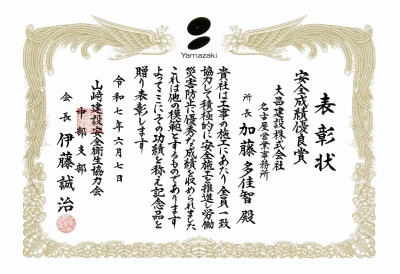 Yamazaki
表彰状
安全成績優良賞
大昌建設株式会社
名古屋営業事務所
所長 加藤多佳智 殿
貴社は工事の施工にあたり全員一致
協力して積極的に安全施工を推進し労働
災害防止に優秀な成績を収められました
これは他の模範とするものであります
よってここにその功績を称え記念品を
贈り表彰します
令和七年六月七日
山﨑建設安全衛生協力会
中部支部
会長 伊藤誠治